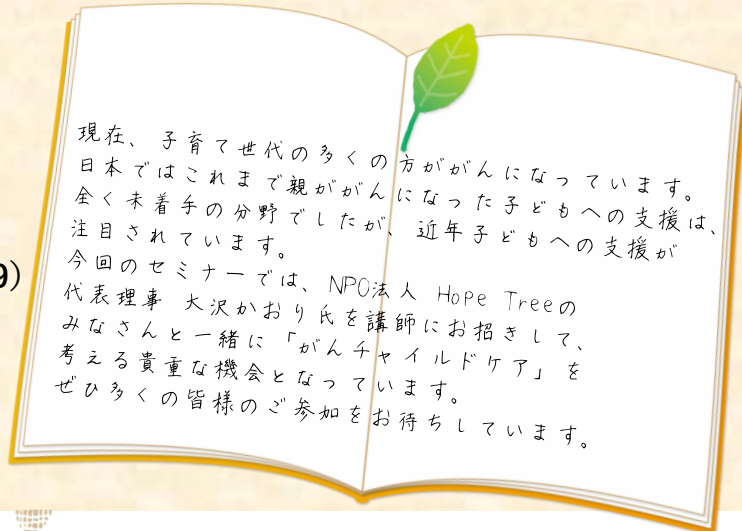 現在、子育て世代の多くの方ががんになっています。
日本ではこれまで親ががんになった子どもへの支援は、
全く未着手の分野でしたが、近年子どもへの支援が
注目されています。
今回のセミナーでは、NPO法人 Hope Treeの
代表理事 大沢かおり氏を講師にお招きして、
みなさんと一緒に「がんチャイルドケア」を
考える貴重な機会となっています。
ぜひ多くの皆様のご参加をお待ちしています。
9)